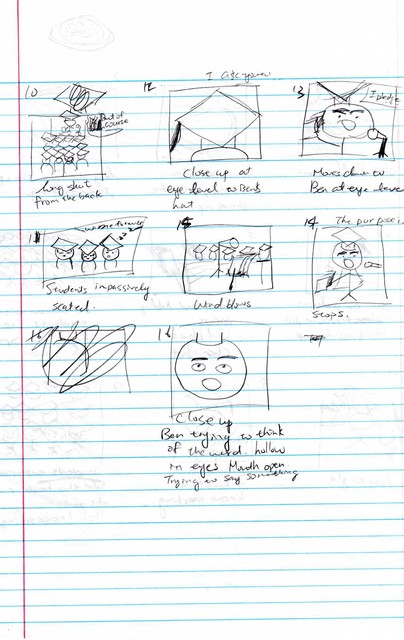 10
Out of
course
long shot
from the back
12
Close up at
eye level to Ben's
hat
13
I pledge
Moves down to
Ben at eye level
11
Students impassively
seated.
15
Wind blows
14
The purpose
Stops.
16
Close up
Ben trying to think
of the word. hollow
in eyes Mouth open
Trying to say something